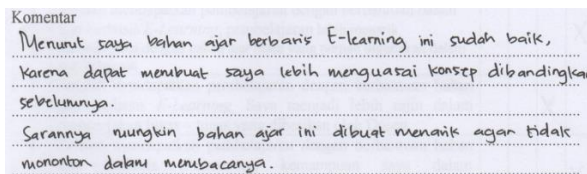 Komentar
Menurut saya bahan ajar berbaris E-learning ini sudah baik,
karena dapat membuat saya lebih menguasai konsep dibandingka
sebelumnya.
Sarannya mungkin bahan ajar ini dibuat menarik agar tidak
mononton dalam membacanya.